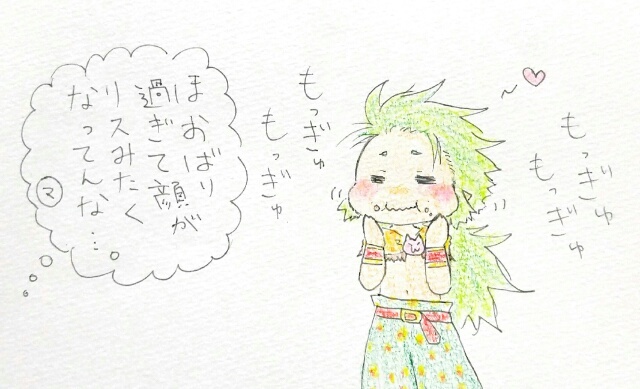 ほおばり
過ぎて顔が
リスみたく
なってんな…
マ
もっぎゅ
もっぎゅ
もっぎゅ
もっぎゅ